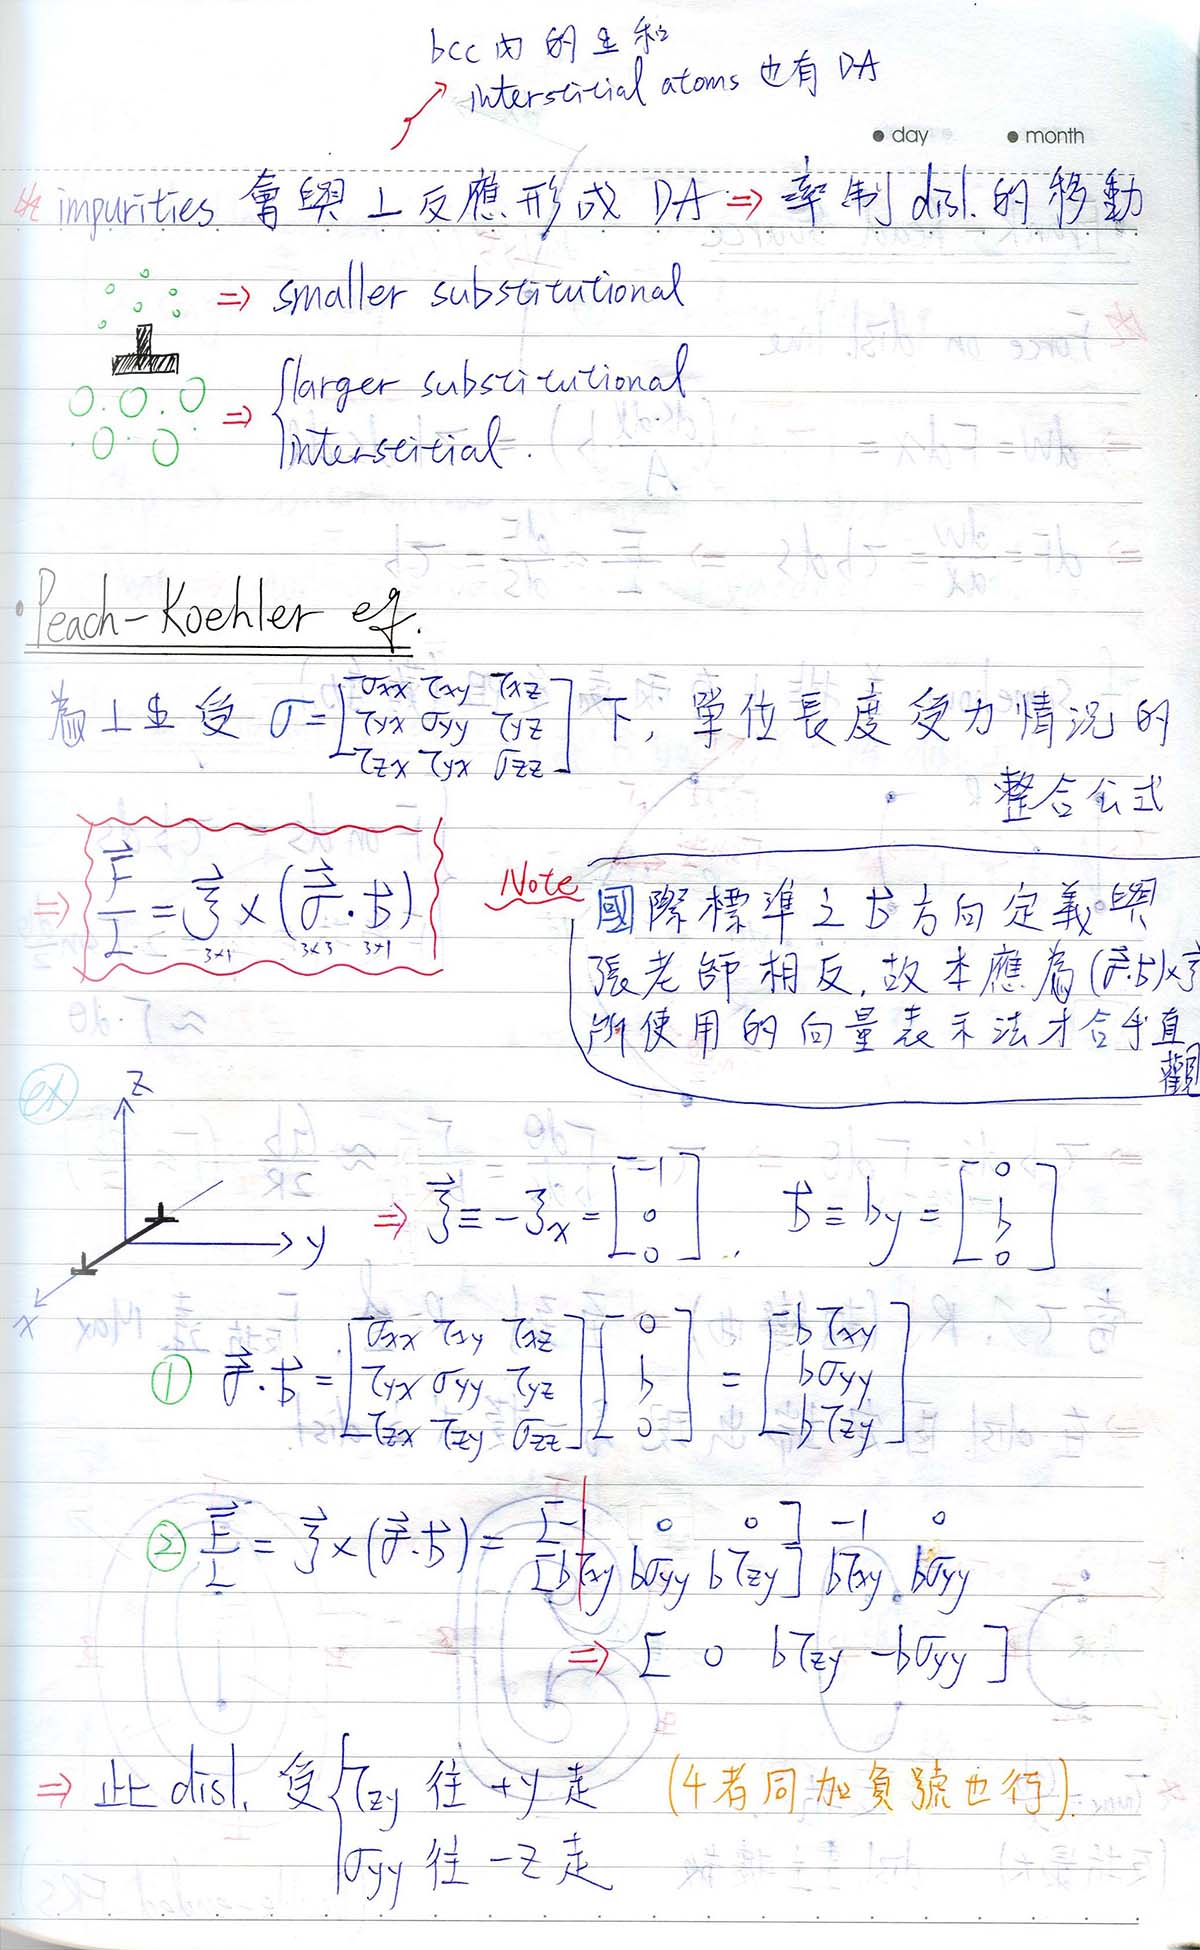 bcc 內的 ⊥ 和
interstitial atoms 也有 DA
● day ● month
impurities 會與 ⊥ 反應形成 DA ⇒ 牽制 disl. 的移動
⇒ smaller substitutional
⇒ { larger substitutional
interstitial.
Peach-Koehler eq.
為 ⊥ 在受 σ = [σxx τxy τxz
τyx σyy τyz
τzx τyx σzz] 下, 單位長度受力情況的
整合公式
⇒ F/L = ξ × (σ · b)
3×1 3×3 3×1
Note
國際標準之 b 方向定義與
張老師相反, 故本應為 (σ·b)×ξ
所使用的向量表示法才合乎直
觀
ex
z
y
x
⇒ ξ ≡ -ξx = [-1 0 0], b ≡ by = [0 b 0]
① σ · b = [σxx τxy τxz
τyx σyy τyz
τzx τzy σzz] [0 b 0] = [bτxy bσyy bτzy]
② F/L = ξ × (σ·b) = [-1 0 0] -1 0
[bτxy bσyy bτzy] bτxy bσyy
⇒ [0 bτzy -bσyy]
⇒ 此 disl. 受 { τzy 往 +y 走 (4者同加負號也行).
σyy 往 -z 走